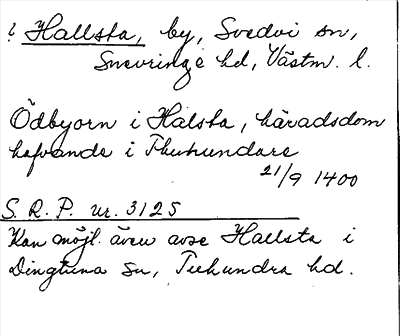 ? Hallsta, by, Svedvi sn,
Snevringe hd, Västm. l.
Ödbyorn i Halsta, häradsdom
hafvande i Thuhundare
21/9 1400
S. R. P. nr. 3125
Kan möjl. även avse Hallsta i
Dingtuna sn, Tuhundra hd.